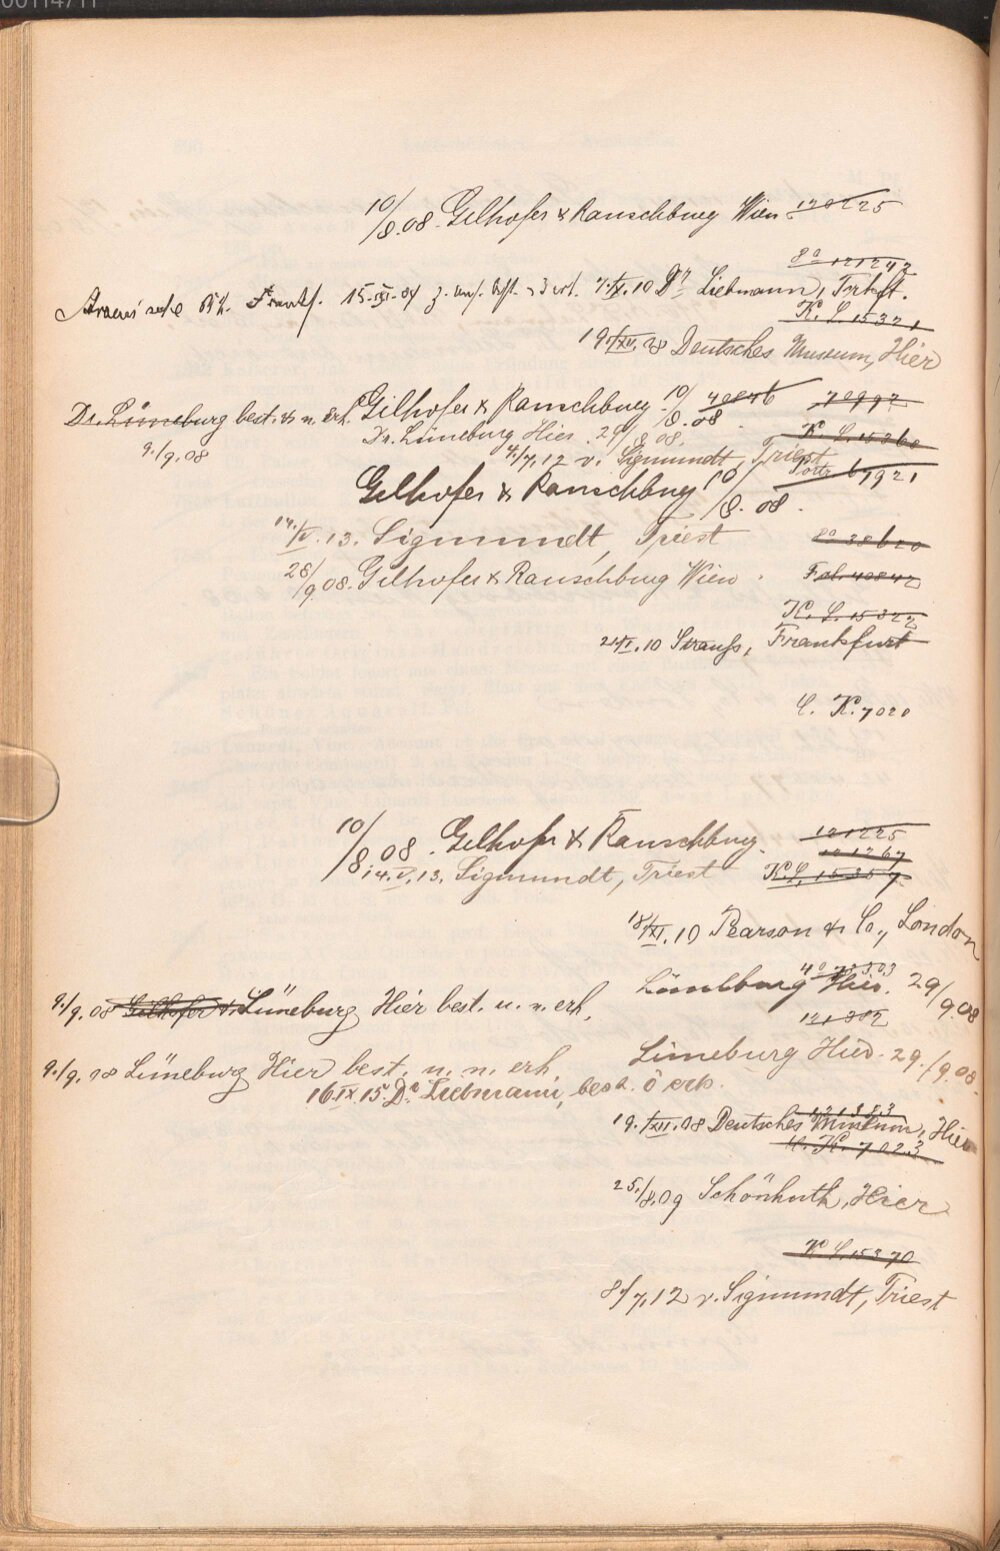 10/8.08. Gilhofer & Ranschburg Wien. 120225
8° 121242
Frankf. 15. 7./XI.10 Dr Liebmann, Frkft.
K. L. 15321
19./XII.08 Deutsches Museum, Hier
Dr. Lüneburg best. & n. erh. Gilhofer & Ranschburg 10/8.08 40846 70997
9./9.08 Dr. Lüneburg Hier. 29/8 08. K. L. 15360
4./7.12 v. Sigmundt, Triest
Gilhofer & Ranschburg 10/8.08. 67921
14./V.13. Sigmundt, Triest 8° 38620
28/9 08. Gilhofer & Ranschburg Wien. Fol. 40842
K. L. 15322
10 Strauss, Frankfurt
L. K. 7020
10/8 08. Gilhofer & Ranschburg. 121225
121267
14.V.13. Sigmundt, Triest K.L. 15357
18/XI.10 Pearson & Co., London
Lüneburg Hier. 29/9.08
9./9.08 Gilhofer & Lüneburg Hier best. u. n. erh.
121302
Lüneburg Hier. 29./9.08.
9./9.08 Lüneburg Hier best. u. n. erh
16.IX.15. Dr Liebmann, best. o erh.
121323
19./XII.08 Deutsches Museum, Hier
L. K. 7023
25./8.09 Schönhuth, Hier
K L. 15370
8./7.12 v. Sigmundt, Triest